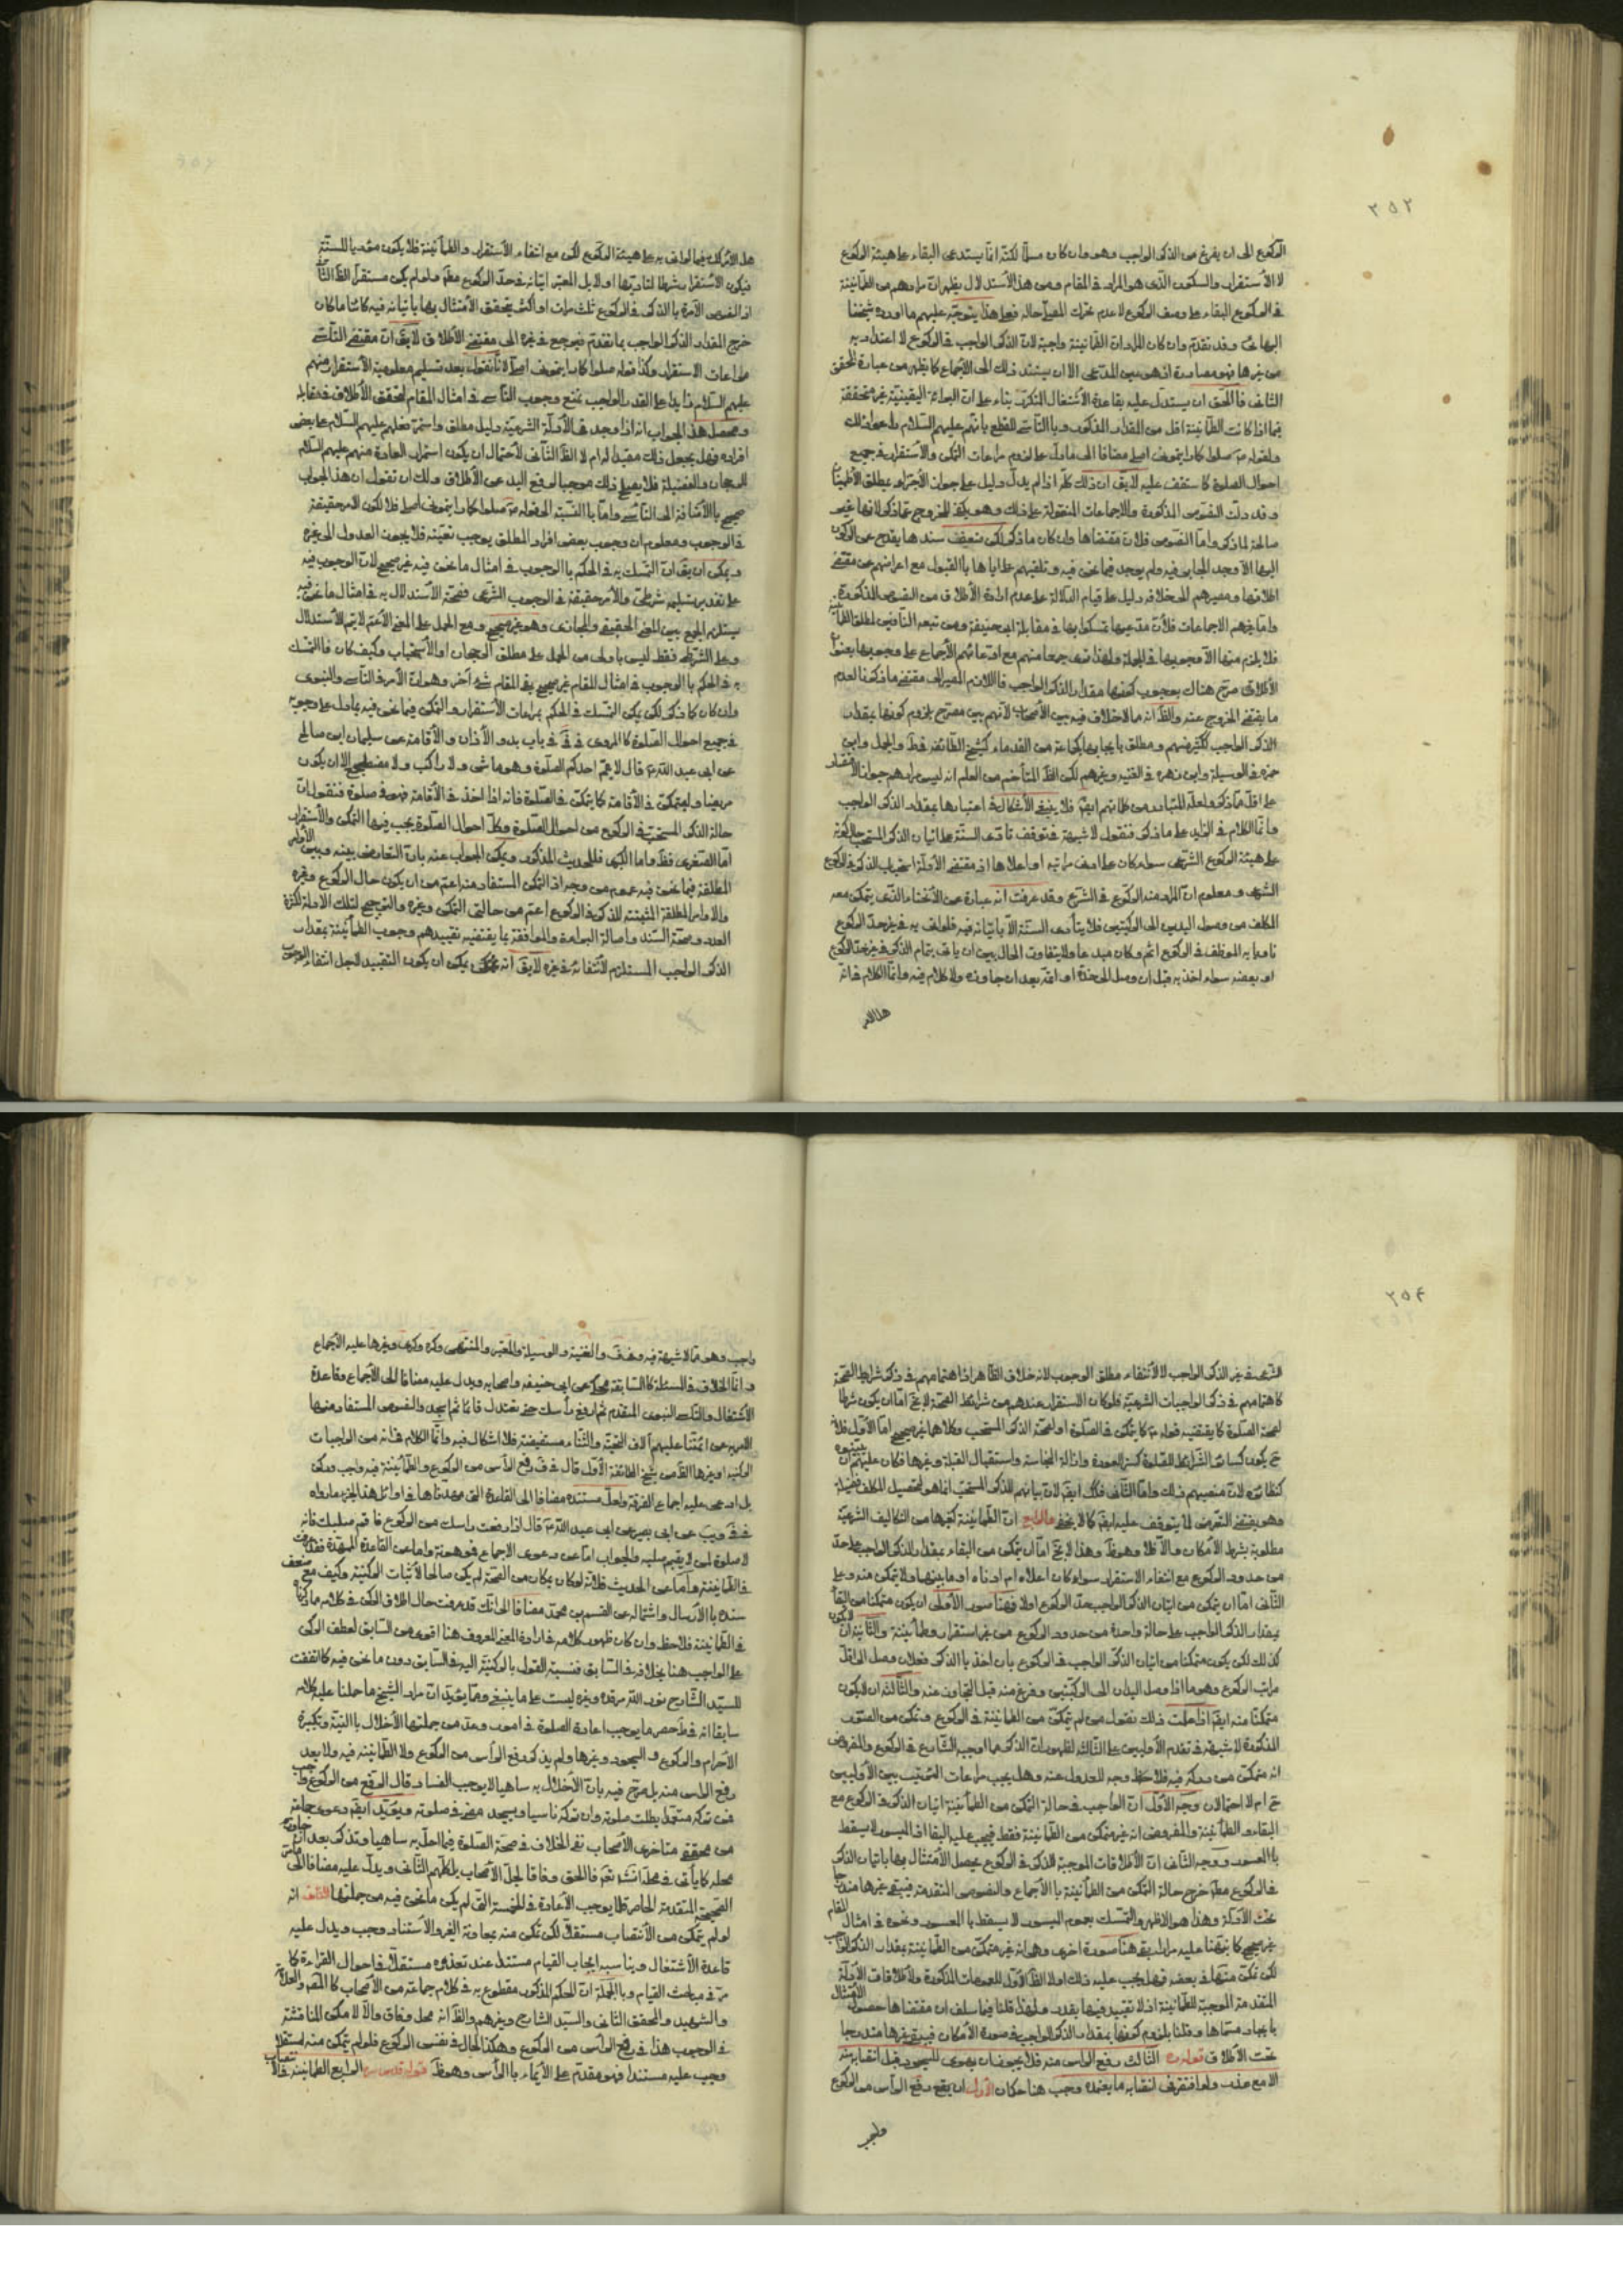 ٢٥٢
الركوع الى ان يفرغ من الذكر الواجب وهو وان كان مسلّما لكنّه انّما يستدعى البقاء على هيئة الركوع
لا الاستقرار والسكون الّذى هو المراد فى المقام ومن هذا الاستدلال يظهر ان مرادهم من الطمانينة
فى الركوع البقاء على وصف الركوع لا عدم تحرك المصلّى حاله فعلى هذا يتوجّه عليهم ما اورده شيخنا
البهائى وقد تقدّم وان كان المراد ان الطمانينة واجبة لان الذكر الواجب فى الركوع لا اعتداد به
من غيرها فهو مصادرة اذ هو عين المدّعى الا ان يستند ذلك الى الاجماع كما يظهر من عبارة المحقق
الثانى فالحق ان يستدلّ عليه بقاعدة الاشتغال بناء على ان البراءة اليقينيّة غير متحققة
فيما اذا كانت الطمانينة اقل من المقدار المذكور وبالتأسّى للقطع بانّهم عليهم السّلام
ولقوله ص صلّوا كما رايتمونى اصلّى مضافا الى ما دلّ على لزوم مراعات التمكن والاستقرار فى جميع
احوال الصلوة كما ستقف عليه لا يق ان ذلك كلّه اذا لم يدلّ دليل على جواز الاجتزاء بمطلق الاطمينان
وقد دلّت النصوص المذكورة والاجماعات المنقولة على ذلك وهو يكفى للخروج عمّا ذكر لانها غير
صالحة لما ذكر وامّا النصوص فلان مقتضاها وان كان ما ذكر لكن ضعف سندها يقدح عن الركون
اليها الا وجد الجابر فيه ولم يوجد فيما نحن فيه وتلقيهم اياها بالقبول مع اعراضهم عن مقتضى
اطلاقها ومصيرهم الى خلافه دليل على قيام الدلالة على عدم ارادة الاطلاق من النصوص المذكورة
وامّا غيرهم الاجماعات فلان مدّعيها تمسكوا بها فى مقابلة ابى حنيفة ومن تبعه النافين لمطلق الطمأنينة
فلا يلزم منها الا وجوبها فى الجملة ولهذا ترى جمعا منهم مع ادّعائهم الاجماع على وجوبها بعنوان
الاطلاق صرّح هناك بوجوب كونها مقدار الذكر الواجب فاللازم المصير الى مقتضى ما ذكرنا لعدم
ما يقتضى الخروج عنه والظ انه مما لا خلاف فيه بين الاصحاب لانهم بين مصرّح بلزوم كونها بمقدار
الذكر الواجب كاكثرهم ومطلق بايجابها كجماعة من القدماء كشيخ الطائفة فى ط والجمل وابن
حمزة فى الوسيلة وابن زهرة فى الغنية وغيرهم لكن الظ المتأخم من العلم انه ليس مرادهم جواز الاقتصار
على اقل ممّا ذكر ولعلّه المتبادر من كلماتهم ايضا فلا ينبغى الاشكال فى اعتبارها بمقدار الذكر الواجب
وانّما الكلام فى الزايد على ما ذكر فنقول لا شبهة فى توقف تأدّى السنّة على اتيان الذكر المستحب حال كونه
على هيئة الركوع الشرعى سواء كان على ادنى مراتبه او اعلاها اذ مقتضى الادلّة استحباب الذكر فى الركوع
الشرعى ومعلوم ان المراد منه الركوع فى الشرع وقد عرفت انه عبارة عن الانحناء الذى يتمكن معه
المكلف من وصول اليدين الى الركبتين فلا يتأدى السنّة الا باتيانه فيه فلو اتى به فى غير حدّ الركوع
ناويا به الموظف فى الركوع اثم وكان مبدعا ولا يتفاوت الحال بين ان ياتى بتمام الذكر فى غير حدّ الركوع
او بعضه سواء اخذ به قبل ان وصل الى حدّه او اتمّه بعد ان جاوزه ولا كلام فيه وانّما الكلام فى انه
هل الامر
هل الامر كذلك فيما لو اتى به على هيئة الركوع لكن مع انتفاء الاستقرار والطمأنينة فلا يكون مؤديا للسنّة
فيكون الاستقرار شرطا لتاديتها او لا بل المعتبر اتيانه فى حدّ الركوع مطم ولو لم يكن مستقرّا الظ الثانى
اذ النصوص الآمرة بالذكر فى الركوع ثلث مرات او اكثر يتحقق الامتثال بها باتيانه فيه كائنا ما كان
خرج المقدار الذكر الواجب بما تقدم فيرجع فى غيره الى مقتضى الاطلاق لا يق ان مقتضى التأسّى
مراعات الاستقرار وكذا قوله صلوا كما رايتمونى اصلّى لانا نقول بعد تسليم معلومية الاستقرار منهم
عليهم السّلام زايدا على القدر الواجب نمنع وجوب التأسّى فى امثال المقام لتحقق الاطلاق فى مقابله
ومحصل هذا الجواب انه اذا وجد فى الادلّة الشرعيّة دليل مطلق واستمرّ فعلهم عليهم السّلام على بعض
افراده فهل يجعل ذلك مقيدا له ام لا الظ الثانى لاحتمال ان يكون استمرار العادة منهم عليهم السّلام
للرجحان والفضيلة فلا يصلح ذلك موجبا لرفع اليد عن الاطلاق ولك ان تقول ان هذا الجواب
صحيح بالاضافة الى التأسّى وامّا بالنسبة الى قوله ص صلوا كما رايتمونى اصلّى فلا لكون الامر حقيقة
فى الوجوب ومعلوم ان وجوب بعض افراد المطلق يوجب تعيّنه فلا يجوز العدول الى غيره
ويمكن ان يق ان التمسك به فى الحكم بالوجوب فى امثال ما نحن فيه غير صحيح لان الوجوب فيه
على تقدير تسليمه شرطى والامر حقيقة فى الوجوب الشرعى فصحّة الاستدلال به فى امثال ما نحن فيه
يستلزم الجمع بين المعنى الحقيقى والمجازى وهو غير صحيح ومع الحمل على المعنى الاعم لا يتم الاستدلال
وعلى الشرطى فقط ليس باولى من الحمل على مطلق الرجحان او الاستحباب وكيف كان فالتمسك
به فى الحكم بالوجوب فى امثال المقام غير صحيح بقى المقام شىء آخر وهو ان الامر فى التأسّى والنبوى
وان كان كما ذكر لكن يمكن التمسك فى الحكم بمراعات الاستقرار والتمكن فيما نحن فيه بما دل على وجوبه
فى جميع احوال الصلوة كالمروى فى فى باب بدو الاذان والاقامة عن سليمان بن صالح
عن ابى عبد اللّه ع قال لا يقم احدكم الصلوة وهو ماشى ولا راكب ولا مضطجع الا ان يكون
مريضا وليتمكن فى الاقامة كما يتمكن فى الصلوة فانه اذا اخذ فى الاقامة فهو فى صلوة فنقول ان
حالة الذكر المستحبّ فى الركوع من احوال الصلوة وكل احوال الصلوة يجب فيها التمكن والاستقرار
امّا الصغرى فظ واما الكبرى فللحديث المذكور ويمكن الجواب عنه بان التعارض بينه وبين الادلة
المطلقة فيما نحن فيه عموم من وجه اذ التمكن المستفاد منه اعم من ان يكون حال الركوع وغيره
والاوامر المطلقة المثبتة للذكر فى الركوع اعم من حالتى التمكن وغيره والترجيح لتلك الادلة لكثرة
العدد وصحّة السند واصالة البراءة والموافقة بما يقتضيه تقييدهم وجوب الطمأنينة بمقدار
الذكر الواجب المستلزم لانتفائه فى غيره لا يق انه يمكن ان يكون التقييد لاجل انتفاء الوجوب
٢٥٤
الشرعى فى غير الذكر الواجب لا لانتفاء مطلق الوجوب لانه خلاف الظاهر اذ اهتمامهم فى ذكر شرايط الصحّة
كاهتمامهم فى ذكر الواجبات الشرعيّة فلو كان الاستقرار عندهم من شرايط الصحّة لا يخ امّا ان يكون شرطا
لصحّة الصلوة كما يقتضيه قوله ع كما يتمكن فى الصلوة او لصحّة الذكر المستحب وكلاهما غير صحيح امّا الاول فلانه
ح يكون كسائر الشرائط للصلوة كستر العورة وازالة النجاسة واستقبال القبلة وغيرها فكان عليهم ان يبيّنوه
كنظائره لان منصبهم ذلك وامّا الثانى فكك ايضا لان بيانهم للذكر المستحبّ انما هو لتحصيل المكلف فضيلته
وهو يقتضى التعرض لما يتوقف عليه ايضا كما لا يخفى والواضح ان الطمانينة كغيرها من التكاليف الشرعيّة
مطلوبة بشرط الامكان والا فلا وهو ظ وهذا لا يخ امّا ان يتمكن من البقاء بمقدار الذكر الواجب على حدّ
من حدود الركوع مع انتفاء الاستقرار سواء كان اعلاه ام ادناه او ما بينهما ولا يتمكن منه وعلى
الثانى امّا ان يتمكن من اتيان الذكر الواجب بحدّ الركوع او لا فهنا صور الاولى ان يكون متمكنا من البقاء
بمقدار الذكر الواجب على حالة واحدة من حدود الركوع من غير استقرار وطمأنينة والثانية ان لا يكون
كذلك لكن يكون متمكنا من اتيان الذكر الواجب فى الركوع بان اخذ بالذكر فى اوان وصل الى اقل
مراتب الركوع وهو ما اذا وصل اليدان الى الركبتين وفرغ منه قبل التجاوز عنه والثالثة ان لا يكون
متمكنا منه ايضا اذا علمت ذلك نقول من لم يتمكن من الطمانينة فى الركوع وتمكن من الصّور
المذكورة لا شبهة فى تقدم الاوليين على الثالثة لظهور ان الذكر مما اوجبه الشارع فى الركوع والمفروض
انه متمكن من دركه فيه فلا حظ وجه للعدول عنه وهل يجب مراعات الترتيب بين الاوليين
ح ام لا احتمالان وجه الاول ان الواجب فى حالة التمكن من الطمانينة اتيان الذكر فى الركوع مع
البقاء والطمأنينة والمفروض انه غير متمكن من الطمانينة فقط فيجب عليه البقاء اذ الميسور لا يسقط
بالمعسور ووجه الثانى ان الاطلاقات الموجبة للذكر فى الركوع يحصل الامتثال بها باتيان الذكر
فى الركوع مطم خرج حالة التمكن من الطمانينة بالاجماع والنصوص المتقدمة فيبقى غيرها مندرجا
تحت الادلة وهذا هو الاظهر والتمسك بعموم الميسور لا يسقط بالمعسور ونحوه فى امثال المقام
غير صحيح كما نبّهنا عليه مرارا بقى هنا صورة اخرى وهو انه غير متمكن من الطمانينة بمقدار الذكر الواجب
لكن تمكن منها فى بعضه فهل يجب عليه ذلك او لا الظ الاول للعمومات المذكورة ولاطلاقات الادلّة
المتقدمة الموجبة للطمانينة اذ لا تقييد فيها بقدر ولهذا قلنا فيما سلف ان مقتضاها حصول الامتثال
بايجاد مسمّاها وقلنا بلزوم كونها بمقدار الذكر الواجب فى صورة الامكان فيبقى غيرها مندرجا
تحت الاطلاق قوله ره الثالث رفع الراس منه فلا يجوز ان يهوى للسجود قبل انتصابه منه
الا مع عذر ولو افتقر فى انتصابه ما يعتمده وجب هنا مكان الاول ان يقع رفع الراس من الركوع
واجب
واجب وهو مما لا شبهة فيه وفى ف والغنية والوسيلة والمعتبر والمنتهى وكره وكرى وغيرها عليه الاجماع
وانّما الخلاف فى المسئلة كالسّابقة محكى عن ابى حنيفة واصحابه ويدل عليه مضافا الى الاجماع وقاعدة
الاشتغال والتأسّى النبوى المتقدم ثم ارفع رأسك حتى تعتدل قائما ثم اسجد والنصوص المستفاد منها
الامر به عن ائمّتنا عليهم آلاف التحيّة والثّناء مستفيضة فلا اشكال فيه وانّما الكلام فى انه من الواجبات
الركنيّة او غيرها الظ من شيخ الطائفة الاول قال فى ف رفع الرأس من الركوع والطّمأنينة فيه واجب وركن
بل ادعى عليه اجماع الفرقة ولعلّ مستنده مضافا الى القاعدة التى مهدناها فى اوائل هذا الجزء ما رواه
فى فى ويب عن ابى بصير عن ابى عبد اللّه ع قال اذا رفعت راسك من الركوع فاقم صلبك فانه
لا صلوة لمن لا يقيم صلبه والجواب امّا عن دعوى الاجماع فموهونة وامّا عن القاعدة الممهّدة فقد عرفت
فى الطّمانينة وامّا عن الحديث فلانّه لو كان بمكان من الصّحة لم يكن صالحا لاثبات الركنيّة وكيف مع ضعف
سنده بالارسال واشتماله عن القسم بن محمد مضافا الى انك قد عرفت حال اطلاق الركن فى كلامه ما ذكرناه
فى الطّمانينة فلاحظ وان كان ظهور كلامه فى ارادة المعنى المعروف هنا اقوى من السّابق لعطف الركن
على الواجب هنا بخلافه فى السّابق فنسبة القول بالركنيّة اليه فى السّابق دون ما نحن فيه كما اتفقت
للسيد الشارح نور اللّه مرقده وغيره ليست على ما ينبغى ومما يؤيد ان مراد الشيخ ما حملنا عليه كلامه
سابقا انه فى ط حصر ما يوجب اعادة الصلوة فى امور وعد من جملتها الاخلال بالنيّة وتكبيرة
الاحرام والركوع والسجود وغيرها ولم يذكر رفع الرأس من الركوع ولا الطّمانينة فيه ولا بعد
رفع الراس منه بل صرّح فيه بان الاخلال به ساهيا لا يوجب الفساد قال الرفع من الركوع واجب
فمن تركه متعمّدا بطلت صلوته وان تركه ناسيا وسجد مضى فى صلوته ويؤيّد ايضا دعوى جماعة
من محققى متاخرى الاصحاب نفى الخلاف فى صحة الصّلوة فيما اخلّ به ساهيا وتذكر بعد ان جاوز
محله كما يأتى فى محلّه انش تع فالحق وفاقا لجلّ الاصحاب بل كلّهم الثّانى ويدلّ عليه مضافا الى ما مرّ
الصحيحة المتقدمة الحاصرة لما يوجب الاعادة فى الخمسة التى لم يكن ما نحن فيه من جملتها الثانى انه
لو لم يتمكن من الانتصاب مستقلا لكن تمكن منه بمعاونة الغير والاستناد وجب ويدل عليه
قاعدة الاشتغال ويناسبه ايجاب القيام مستندا عند تعذره مستقلّا فى احوال القراءة كما
مرّ فى مباحث القيام وبالجملة ان الحكم المذكور مقطوع به فى كلام جماعة من الاصحاب كالمحقق والعلامة
والشهيد والمحقق الثانى والسيّد الشارح وغيرهم والظ انه محل وفاق والا لامكن المناقشة
فى الوجوب هذا فى رفع الرأس من الركوع وهكذا الحال فى نفس الركوع فلو لم يتمكن منه مستقلا
وجب عليه مستندا فهو مقدّم على الايماء بالرأس وهو ظ قوله قدس سره الرابع الطمانينة فى الانتصاب